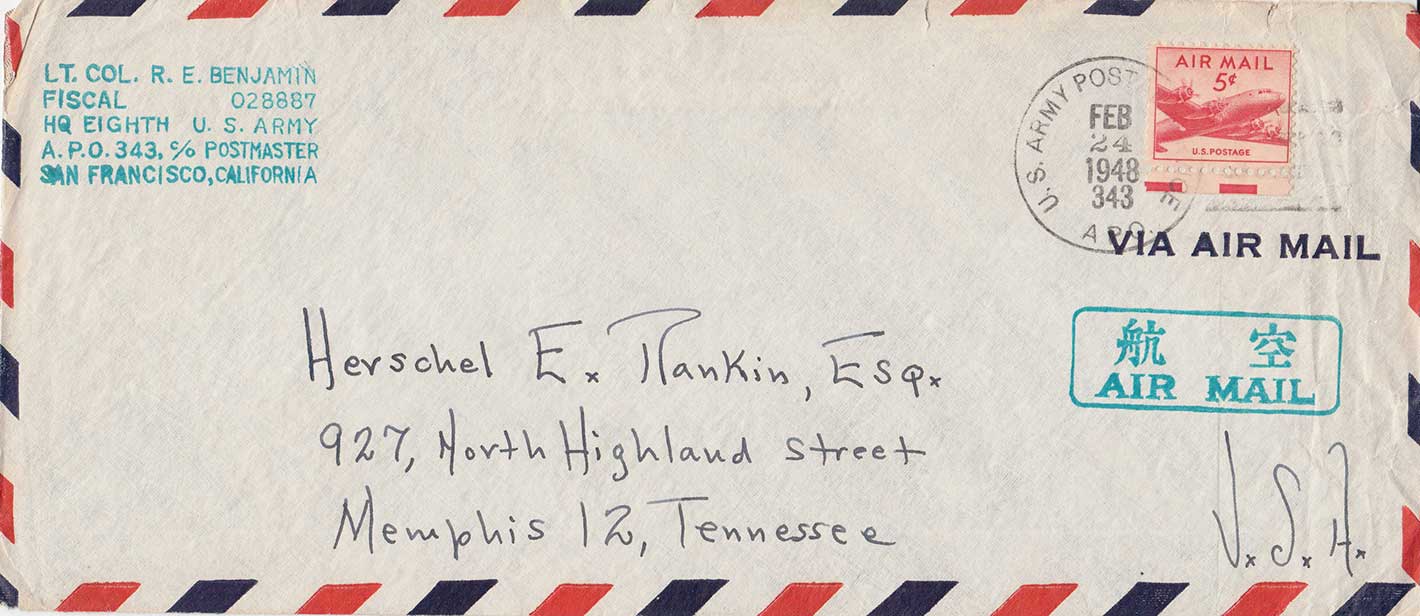 LT. COL. R. E. BENJAMIN
FISCAL 028887
HQ EIGHTH U. S. ARMY
A.P.O. 343, c/o POSTMASTER
SAN FRANCISCO, CALIFORNIA
U.S. ARMY POST
FEB
24
1948
343
A.P.O.
AIR MAIL
5¢
U.S. POSTAGE
VIA AIR MAIL
航 空
AIR MAIL
Herschel E. Rankin, Esq.
927, North Highland Street
Memphis 12, Tennessee
U.S.A.